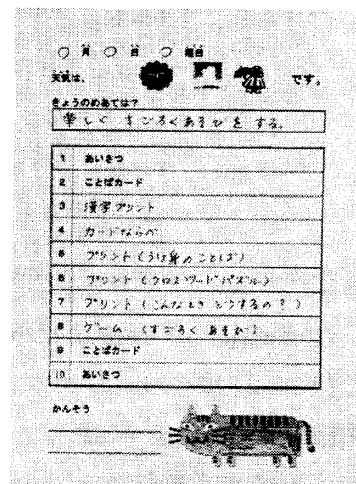 ○ 月 ○ 日 ○ 曜日
天気は、 です。
きょうのめあては?
楽しく すごろくあそび を する。
1 あいさつ
2 ことばカード
3 漢字プリント
4 カードならべ
5 プリント(うけ身のことば)
6 プリント(クロスワードパズル)
7 プリント(こんなとき どうするの?)
8 ゲーム (すごろく あそび)
9 ことばカード
10 あいさつ
かんそう